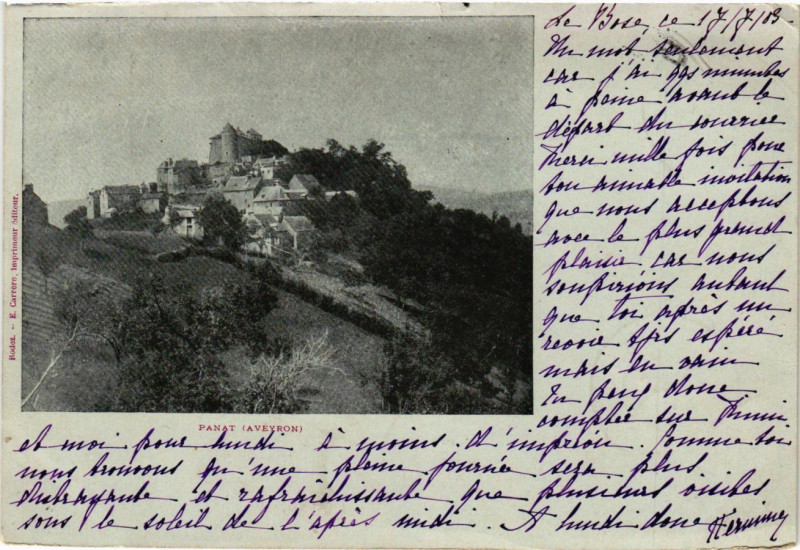 Rodez. — E. Carrère, Imprimeur éditeur.
PANAT (AVEYRON)
Le Bosc, ce 17/7/03.
Un mot seulement
car j'ai qqs minutes
à peine avant le
départ du courrier
Merci mille fois pour
ton aimable invitation
que nous acceptons
avec le plus grand
plaisir car nous
soupirions autant
que toi après un
revoir tjrs espéré
mais en vain
Tu peux donc
compter sur Mimi
et moi pour lundi à moins d'imprévu. Comme toi
nous trouvons qu'une pleine journée sera plus
distrayante et rafraîchissante que plusieurs visites
sous le soleil de l'après midi. A lundi donc